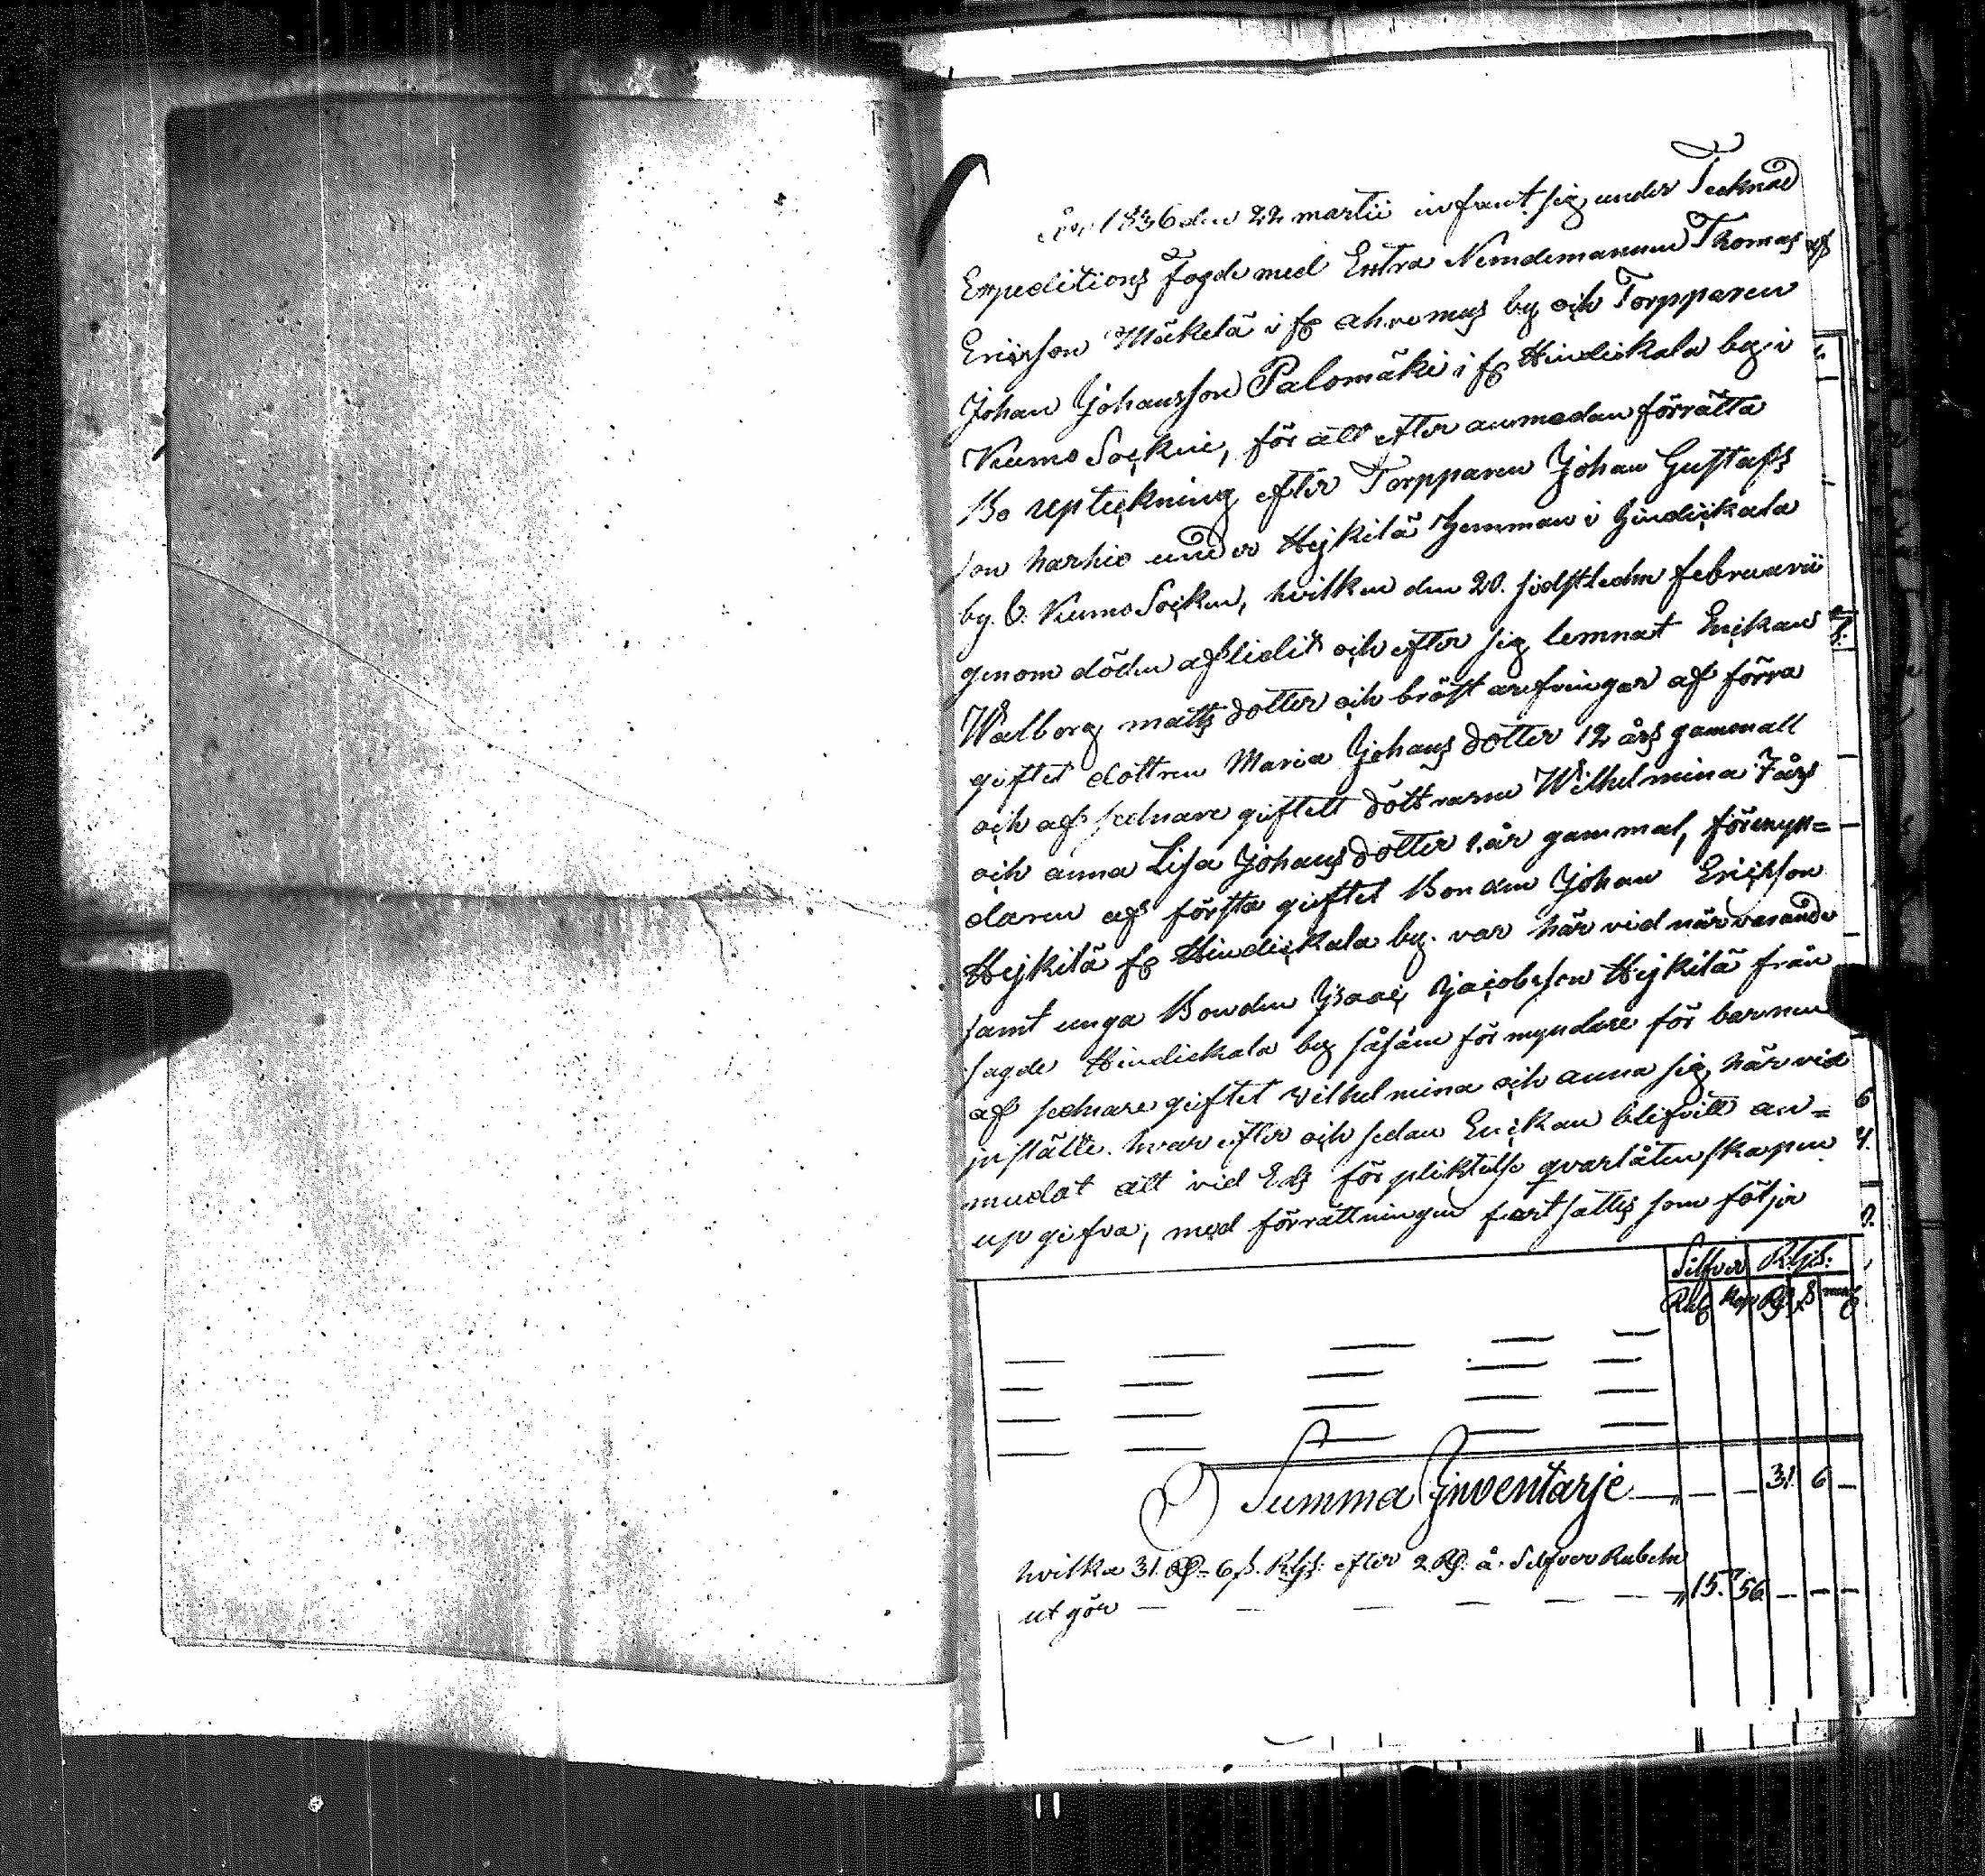 1836 den 22 martii infant sig under Tecknad
Expeditions Fogde med Extra Nemdemannen Thomas
Ericsson Mäkelä i fr ahromus by och Torpparen
Johan Johansson Palomäki i fr Hindickala by i
Kumo Sockne, för att efter anmodan förrätta
Bo upteckning efter Torpparen Johan Gustafs
son Harhio under Hejkilä Hemman i Hindickala
by. O. Kumo Socken, hvilken den 20. sidstledne februarii
genom döden aflidit och efter sig lemnat Enckan
Walborg matts dotter och bröst arfningar af förra
giftet dottren Maria Johans dotter 12 års gammall
och af sednare giftett döttrarne Wilhelmina 7 års
och anna Lisa Johans dotter 1. år gammal, förmyn=
daren af första giftet Bonden Johan Ericsson
Hejkilä fr Hindickala by. var här vid när varande
samt unga Bonden Isaac Jacobsson Hejkilä från
sagde Hindickala by såsom för myndare för barnen
af sednare giftet wilhelmina och anna sig här vid
instälte. hvar efter och sedan Enckan blifvitt an=
mudat att vid Eds för pliktelse qvarlåtenskapen
up gifva, med förrättningen fort sattes som följer
Silfver R:gs:
Rub Kop Rd s
Summa Inventarje — „ — — 31. 6 —
hvilka 31. Rd. 6 s. R:gs: efter 2. Rd. å. Silfver Rubeln
ut gör — — — — — — „ 15. 56 — — —